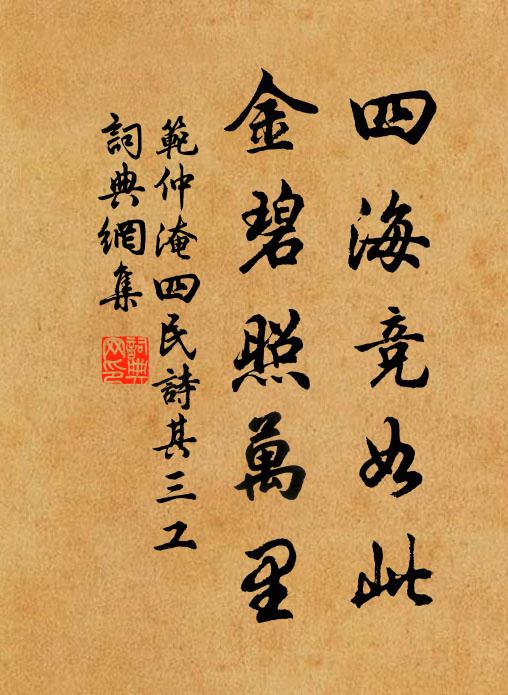 四海竞如此
金碧照萬里
範仲淹四民詩其三工
詞典網集